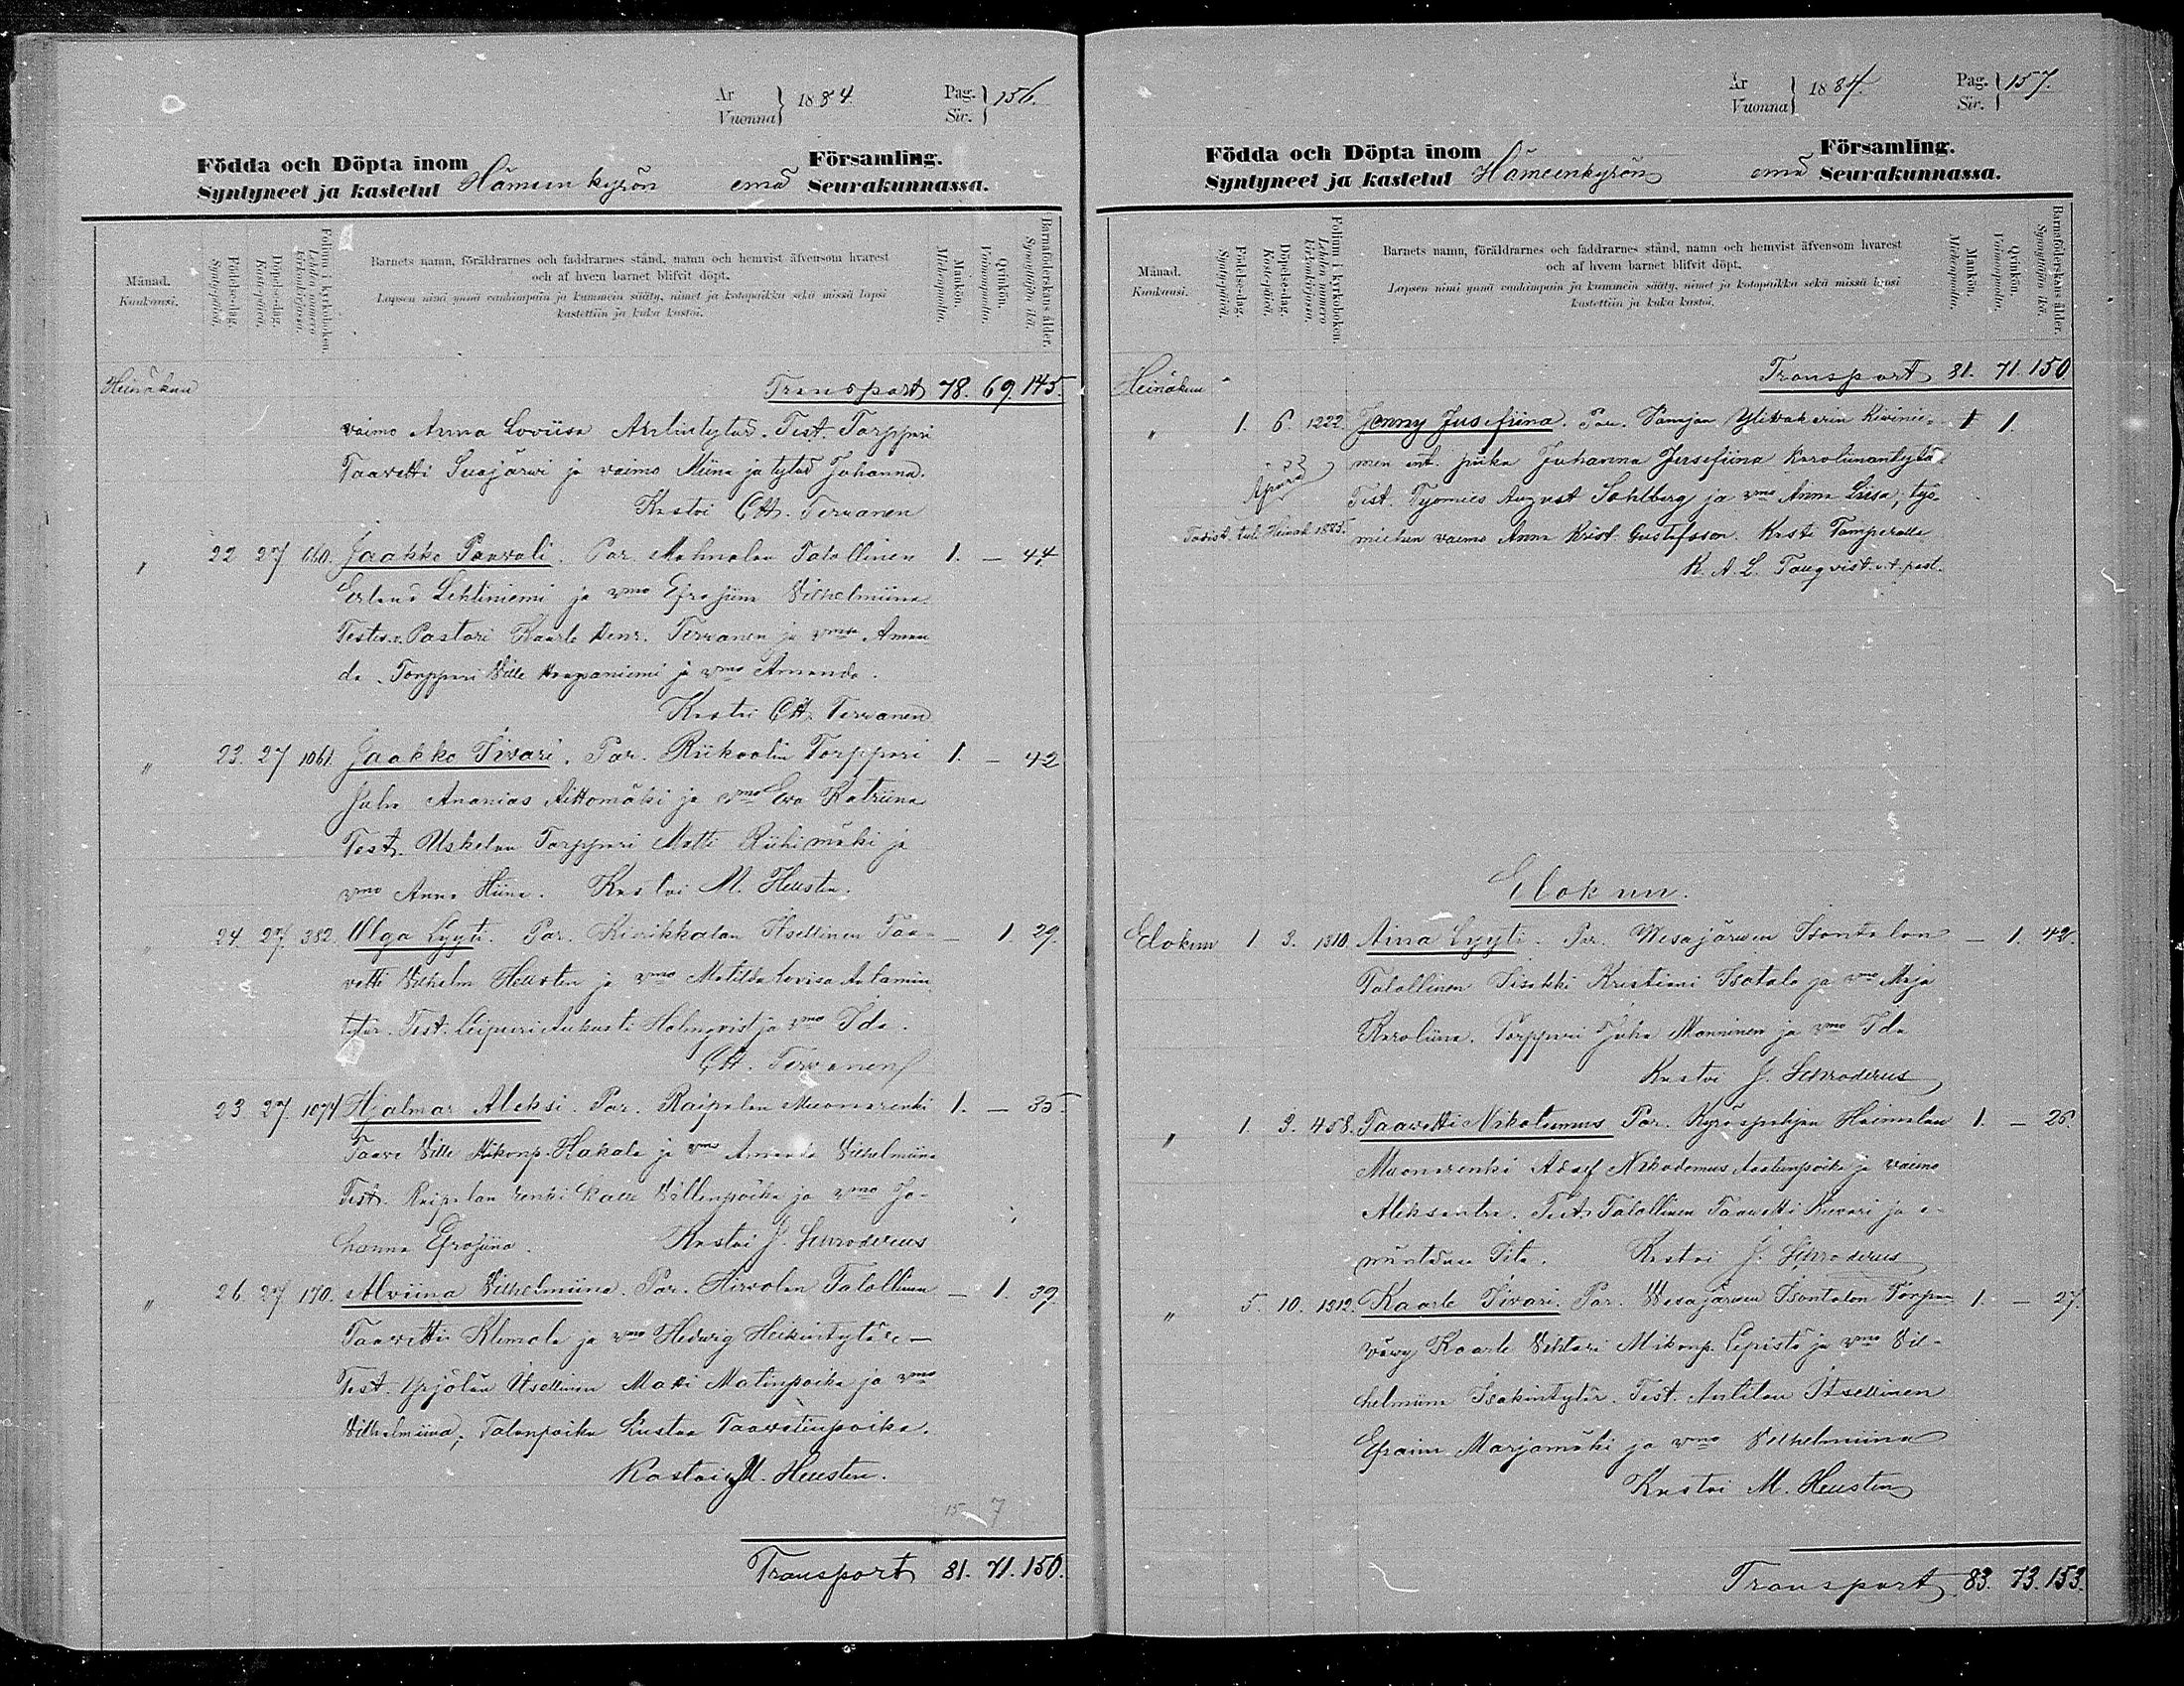 År Vuonna 1884. Pag. Sir. 156.
Födda och Döpta inom Församling.
Syntyneet ja kastetut Hämeenkyrön emä Seurakunnassa.
Månad. Kuukausi.
Födelse-dag. Syntypäivä.
Döpelse-dag. Kastepäivä.
Folium i kyrkoboken. Lehden numero kirkonkirjassa.
Barnets namn, föräldrarnes och faddrarnes stånd, namn och hemvist äfvensom hvarest
och af hvem barnet blifvit döpt.
Lapsen nimi ynnä vanhimpain ja kummein sääty, nimet ja kotopaikka sekä missä lapsi
kastettiin ja kuka kastoi.
Mankön. Miehenpuolia.
Qvinkön. Vaimonpuolia.
Barnaföderskans ålder. Synnyttäjän ikä.
Heinäkuu Transport 78. 69. 145.
vaimo Anna Loviisa Test. Torppari
Taavetti Suojärvi ja vaimo Miina ja tytär Johanna.
Kastoi Tervanen
" 22 27 660. Jaakko Paavali. Par. Mahnalan Talollinen 1. — 44
Erland Lehtiniemi ja vmo Efrosiina Vilhelmiina.
Testes. v. Pastori Kaarle Henr. Tervanen ja vmsa Aman-
da. Torppari Ville Haapaniemi ja vmo Amanda.
Kastoi Tervanen
" 23. 27 1061. Jaakko Iivari. Par. Torppari 1. — 42
Juho Ananias Aittomäki ja vmo Eva Katriina
Test. Uskelan Torppari Matti Riihimäki ja
vmo Anna Miina. Kastoi M. Heusten.
" 24. 27. 382. Olga Lyyti. Par. Kierikkalan Itsellinen Taa- — 1. 29.
vetti Vilhelm Hellsten ja vmo Matilda Lovisa
tytär. Test. Aukusti Holmqvist ja vmo Ida.
Tervanen
23 27. 1074 Hjalmar Aleksi. Par. Raipalan Muonarenki 1. — 35
Taave Ville Mikonp. Hakala ja vmo Amanda Vilhelmiina
Test. Raipalan renki Kalle Villenpoika ja vmo Jo-
hanna Efrosiina. Kastoi J. Schroderus
" 26. 27. 170. Alviina Vilhelmiina. Par. Hirvolan Talollinen — 1. 39.
Taavetti Klemola ja vmo Hedvig Heikintytär. —
Test. Yrjölän Itsellinen Matti Matinpoika ja vmo
Vilhelmiina; Talonpoika Kustaa Taavetinpoika.
Kastoi M. Heusten.
15 7
Transport 81. 71. 150.
År Vuonna 1884. Pag. Sir. 157.
Födda och Döpta inom Församling.
Syntyneet ja kastetut Hämeenkyrön emä Seurakunnassa.
Månad. Kuukausi.
Födelse-dag. Syntypäivä.
Döpelse-dag. Kastepäivä.
Folium i kyrkoboken. Lehden numero kirkonkirjassa.
Barnets namn, föräldrarnes och faddrarnes stånd, namn och hemvist äfvensom hvarest
och af hvem barnet blifvit döpt.
Lapsen nimi ynnä vanhimpain ja kummein sääty, nimet ja kotopaikka sekä missä lapsi
kastettiin ja kuka kastoi.
Mankön. Miehenpuolia.
Qvinkön. Vaimonpuolia.
Barnaföderskans ålder. Synnyttäjän ikä.
Heinäkuu Transport 81. 71. 150
" 1. 6. 1222. Jenny Jusefiina. Par. Kivinie- 1 1.
men ent. piika Juhanna Jusefiina Karoliinantytär
Apara Test. Työmies August Sahlberg ja vmo Anna Liisa; työ-
Todist. tuli Heinäk 1885. miehen vaimo Anna Krist. Gustafsson. Kasti Tampereella
K. A. L. Tauqvist v. t. past.
Elokuu.
Elokuu 1 3. 1310. Aina Lyyti. Par. Wesajärven Isontalon — 1. 42.
Talollinen Iisakki Kristiani Isotalo ja vmo Maja
Karoliina. Torppari Juha Manninen ja vmo Ida
Kastoi J. Schroderus
" 1. 3. 458. Taavetti Nikotemus Par. Kyröspohjan Heimolan 1. — 26.
Muonarenki Adolf Nikodemus ja vaimo
Aleksantra. Test. Talollinen Taavetti ja e-
mäntänsä Iita. Kastoi J. Schroderus
" 5. 10. 1312. Kaarle Iivari. Par. Wesajärven Isontalon Torpan 1. — 27.
vävy Kaarle Vihtori Mikonp. Lepistö ja vmo Vil-
helmiina Isakintytär. Test. Anttilan Itsellinen
Efraim Marjamäki ja vmo Vilhelmiina
Kastoi M. Heusten
Transport 83. 73. 153.